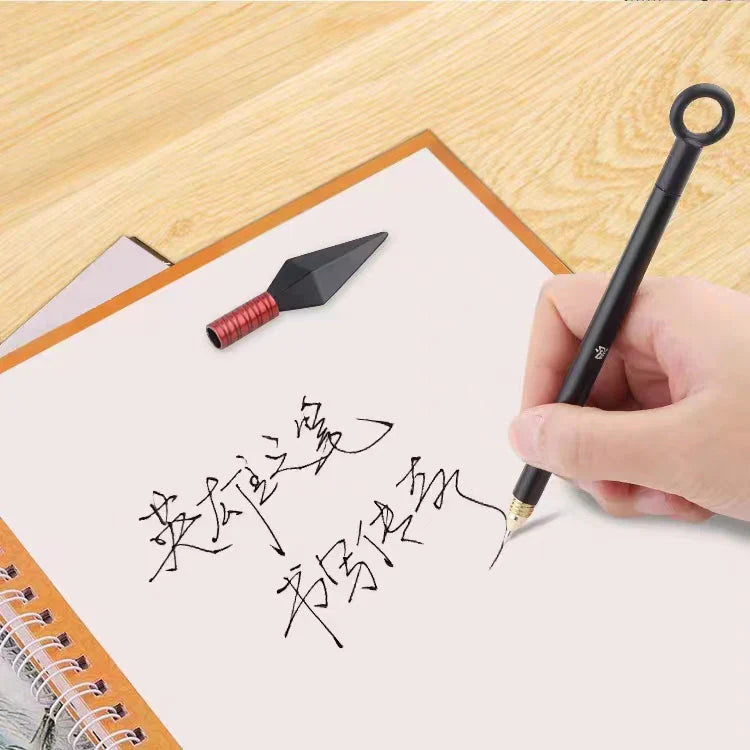 英雄之笔
书写传承